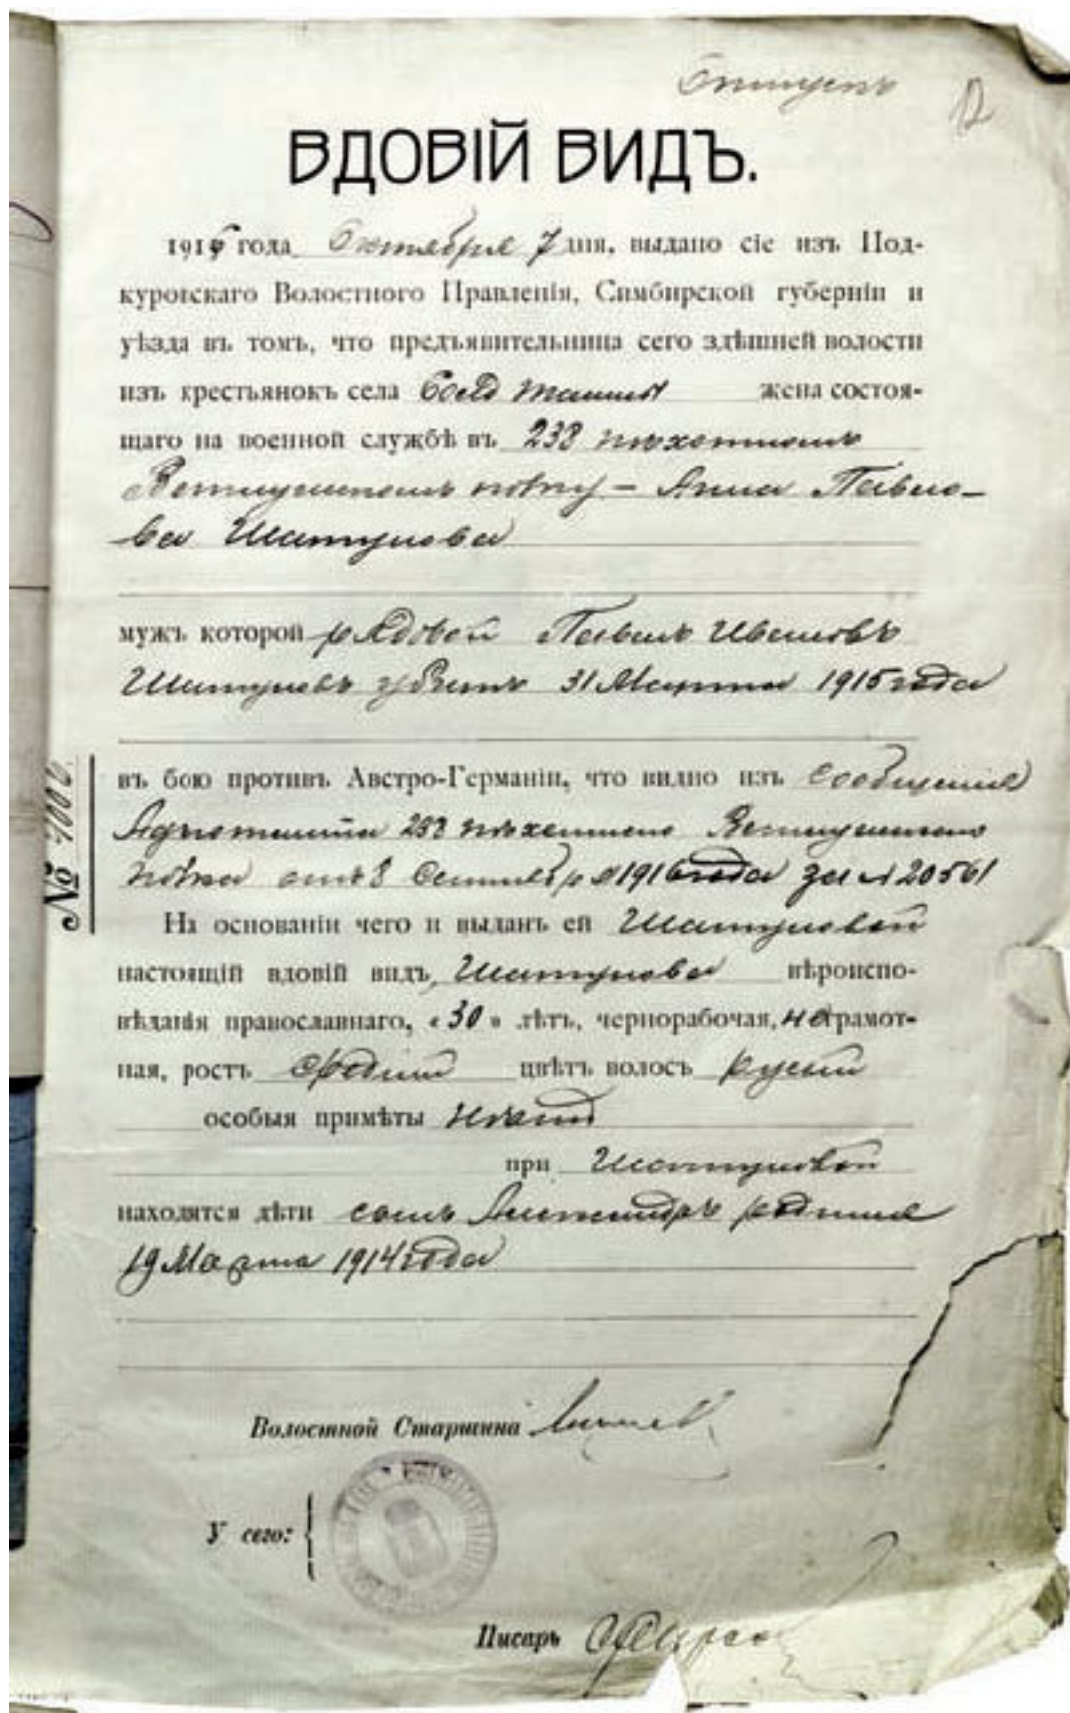 Отпускъ
12
ВДОВІЙ ВИДЪ.
1916 года Октября 7 дня, выдано сіе из Под-
куровскаго Волостного Правленія, Симбирской губерніи и
уѣзда въ томъ, что предъявительница сего здѣшней волости
изъ крестьянокъ села жена состоя-
щаго на военной службѣ въ 238 пѣхотномъ
Ветлужскомъ полку - Анна Павло-
ва Шатунова
мужъ которой рядовой Павелъ Ивановъ
Шатуновъ убитъ 31 Марта 1915 года
въ бою противъ Австро-Германіи, что видно изъ сообщенія
Адъютанта 238 пѣхотнаго Ветлужскаго
полка отъ 8 Сентября 1916 года за № 20561
№
На основаніи чего и выданъ ей Шатуновой
настоящій вдовій видъ, Шатунова вѣроиспо-
вѣданія православнаго, «30» лѣтъ, чернорабочая, неграмот-
ная, ростъ средній цвѣтъ волосъ русый
особыя примѣты
при Шатуновой
находятся дѣти сынъ Александръ родился
19 Марта 1914 года
Волостной Старшина
У сего:
Писарь